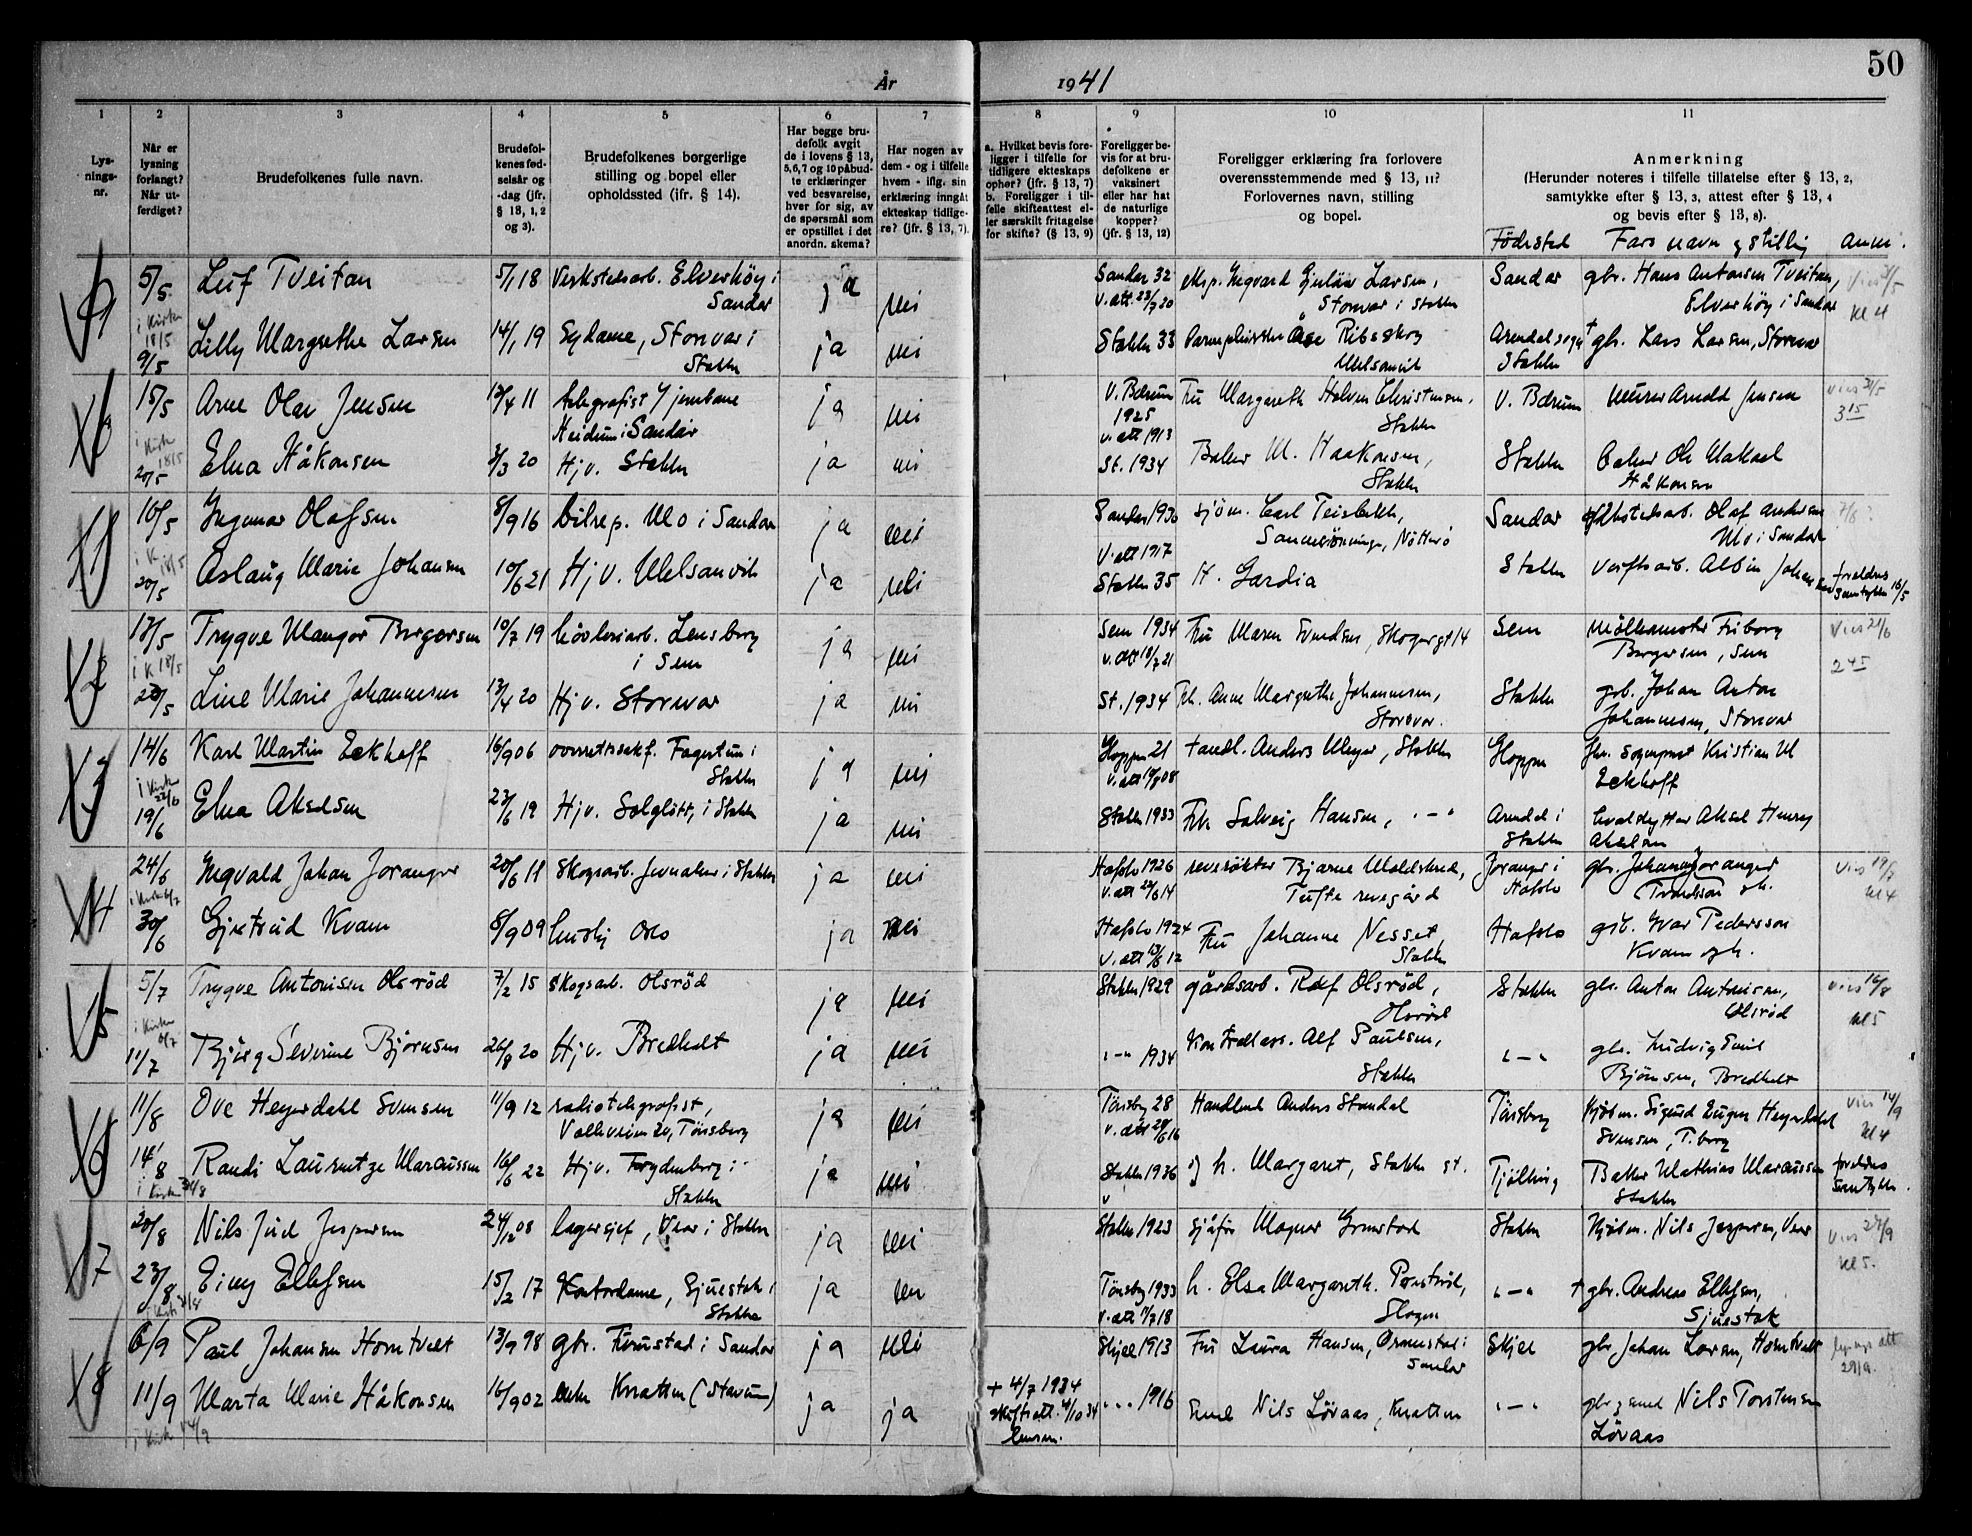 50
År 1941
1 2 3 4 5 6 7 8 9 10 11
Lys-
nings-
nr.
Når er
lysning
forlangt?
Når ut-
ferdiget?
Brudefolkenes fulle navn.
Brudefol-
kenes fød-
selsår og
-dag (jfr.
§ 13, 1, 2
og 3).
Brudefolkenes børgerlige
stilling og bopel eller
opholdssted (ifr. § 14).
Har begge bru-
defolk avgit
de i lovens § 13,
5, 6, 7 og 10 påbud-
te erklæringer
ved besvarelse,
hver for sig, av
de spørsmål som
er opstillet i det
anordn. skema?
Har nogen av
dem - og i tilfelle
hvem - iflg. sin
erklæring inngått
ekteskap tidlige-
re? (jfr. § 13, 7).
a. Hvilket bevis fore-
ligger i tilfelle for
tidligere ekteskaps
ophør? (jfr. § 13, 7)
b. Foreligger i til-
felle skifteattest el-
ler særskilt fritagelse
for skifte? (§ 13, 9)
Foreligger be-
vis for at bru-
defolkene er
vaksinert
eller har hat
de naturlige
kopper?
(jfr. § 13, 12)
Foreligger erklæring fra forlovere
overensstemmende med § 13, 11?
Forlovernes navn, stilling
og bopel.
Anmerkning
(Herunder noteres i tilfelle tillatelse efter § 13, 2,
samtykke efter § 13, 3, attest efter § 13, 4
og bevis efter § 13, 8).
Fødested Fars navn og stilling anm.
5/5 Leif Tveitan 5/1 18 Verkstedsarb. Elverhöy i
Sandar ja nei
Sandar 32
v. att. 23/7 20
Ingvard Larsen,
Storevar i Stokke
Sandar gbr. Hans Antonsen Tveitan,
Elverhöy i Sandar
kl 4
i Kirken
18/5
9/5 Lilly Margrethe Larsen 14/1 19 Sydame, Storevar i
Stokke ja nei
Stokke 33 Åse Ribsskog
Melsomvik
Stokke
+ gbr. Lars Larsen, Storevar
15/5 Arne Olav Jensen 13/4 11 telegrafist v/ jernbane
i Sandar ja nei
V. Bærum
1925
v. att 1913
Fru Margareth Halvor Christensen,
Stokke
V. Bærum murer Arnold Jensen
vies 31/5
3 15
i Kirke
18/5
20/5 Elna Håkonsen 3/3 20 Hjv. Stokke ja nei
St. 1934 Baker M. Haakonsen,
Stokke
Stokke baker Ole Makael
Håkonsen
16/5 Ingvar Olafsen 8/9 16 bilrep. Mo i Sandar ja nei
Sandar 1930
v. att 1917
sjöm. Carl Teisbekk,
Nötterö
Sandar Olaf Andersen
Mo i Sandar
7/6?
i K 18/5
20/5 Aslaug Marie Johansen 10/6 21 Hjv. Melsomvik ja nei
Stokke 35 H. Gardia
Stokke verftsarb. Albin Johansen
foreldres
samtykke 16/5
17/5 Trygve Mangor Borgersen 10/7 19 hövleriarb. Lensberg
i Sem ja nei
Sem 1934
v. att 18/7 21
Fru Maren Svendsen, Skogergt 14
Sem Friborg
Borgersen, Sem
vies 21/6
2 45
i K 18/5
20/5 Line Marie Johannesen 13/4 20 Hjv. Storevar ja nei
St. 1934 Frk. Anne Margrethe Johannesen,
Storevar.
Stokke gbr. Johan Anton
Johannesen, Storevar
14/6 Karl Martin Eckhoff 16/9 06 overrettssakf. Fagertun i
Stokke ja nei
Gloppen 21
v. att 19/8 08
tandl. Anders Meyer, Stokke
Gloppen fhv. sogneprest Kristian M
Eckhoff
i Kirke
22/6
19/6 Elna Akselsen 23/6 19 Hjv. Solglött, i Stokke ja nei
Stokke 1933 Frk Solveig Hansen, " — "
Arendal i
Stokke
hvalskytter Aksel Henry
Akselsen
24/6 Ingvald Johan Joranger 20/6 11 skogsarb. i Stokke ja nei
Hafslo 1926
v. att 24/6 14
reverøkter Bjarne Molderud,
Tufte revegård
Joranger i
Hafslo
gbr. Johannes Joranger
vies 19/7
kl 4
30/6 Gjertrud Kvam 8/9 09 hushj Oslo ja nei
Hafslo 1924
v. att 13/6 12
Fru Johanne Nesset
Stokke
Hafslo gbr. Ivar Pedersson
Kvam
5/7 Trygve Antonisen Olsröd 7/2 15 skogsarb. Olsröd ja nei
Stokke 1929 gårdsarb. Rolf Olsröd,
Olsröd
Stokke gbr. Anton Antonisen,
Olsröd
vies 16/8
kl 5
i Kirken
6/7
11/7 Bjørg Severine Bjørnsen 26/8 20 Hjv. Bredholt ja nei
" — " 1934 Kontrollass. Alf Paulsen,
Stokke
" — " gbr. Ludvig Emil
Bjørnsen, Bredholt
11/8 Ove Heyerdahl Svensen 11/9 12 radiotelegrafist,
20, Tönsberg ja nei
Tönsby 28
v. att 29/6 16
Handlend Anders Standal
Tönsberg Kjøbm. Sigurd Eugen Heyerdahl
Svensen, T.berg
vies 14/9
kl 4
14/8 Randi Laurentze Marcussen 16/6 22 Hjv. Frydenberg i
Stokke ja nei
Stokke 1936 Margaret, Stokke st.
Tjölling Baker Mathias Marcussen
Stokke
foreldres
samtykke.
20/8 Nils Juel Jespersen 24/12 08 lagersjef, Vear i Stokke ja nei
Stokke 1923 sjåfør Magnar Grimstad
Stokke Kjøbm. Nils Jespersen, Vear
vies 27/9
kl 5.
23/8 Einy Ellefsen 15/2 17 Kontordame, Sjuestok i
Stokke ja nei
Tönsbg 1933
v. att 11/7 18
h. Elsa Margareth.
Skogen
" — " + gbr. Andreas Ellefsen,
Sjuestok
6/9 Paul Johansen Horntvedt 13/9 98 gbr. Furustad i Sandar ja nei
Skjee 1913 Fru Laura Hansen, Ormestad i
Sandar
Skjee gbr Johan Larsen, Horntvedt
11/9 Marta Marie Håkonsen 16/9 02 enke Knatten (Stavum) ja ja
+ 4/7 1934
skifteatt. 4/10 34
" — " 1916 Smed Nils Løvaas, Knatten
" — " gbr og smed Nils Torstensen
Løvaas
i Kirke 14/9